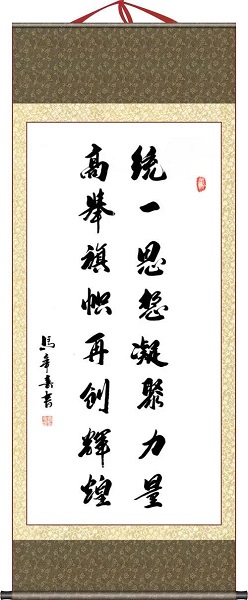 统一思想凝聚力量
高举旗帜再创辉煌